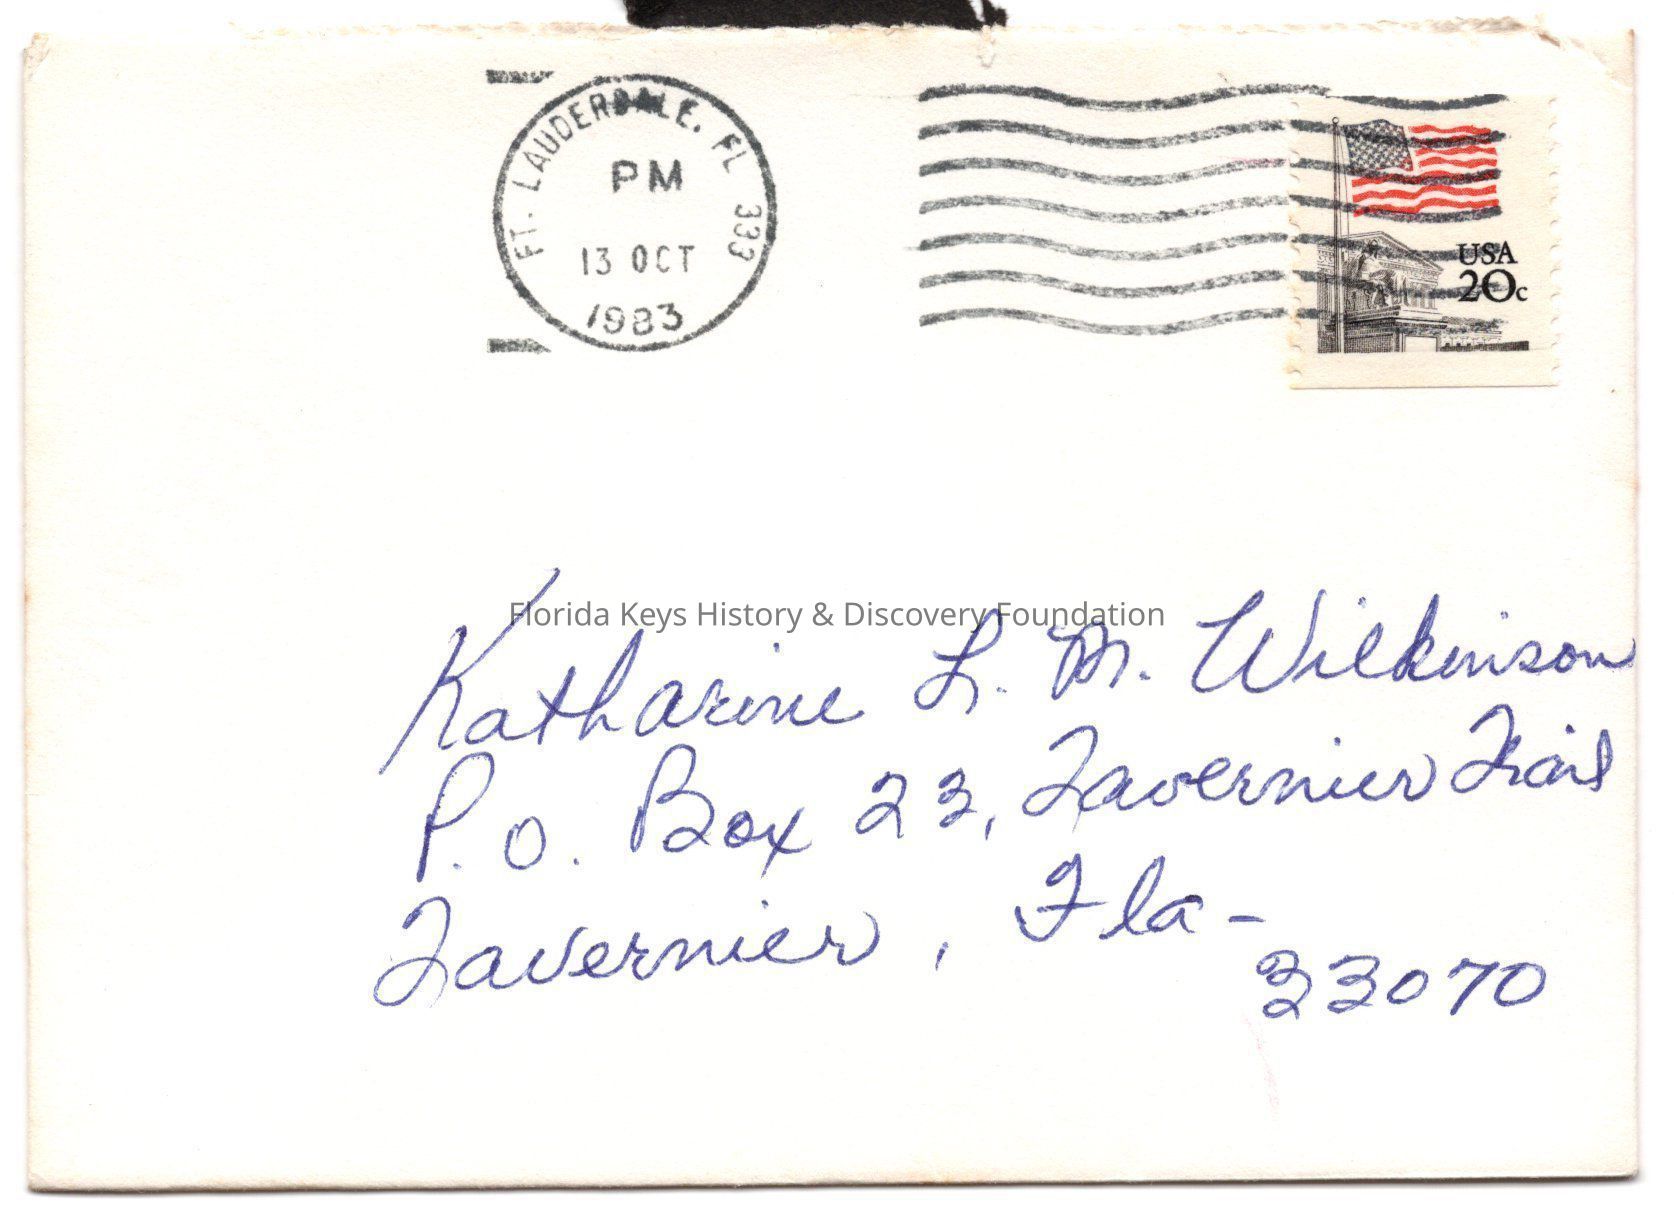 FT. LAUDERDALE, FL 333
PM
13 OCT
1983
USA
20c
Florida Keys History & Discovery Foundation
Katharine L. M. Wilkinson
P.O. Box 23, Tavernier Trail
Tavernier, Fla-
33070